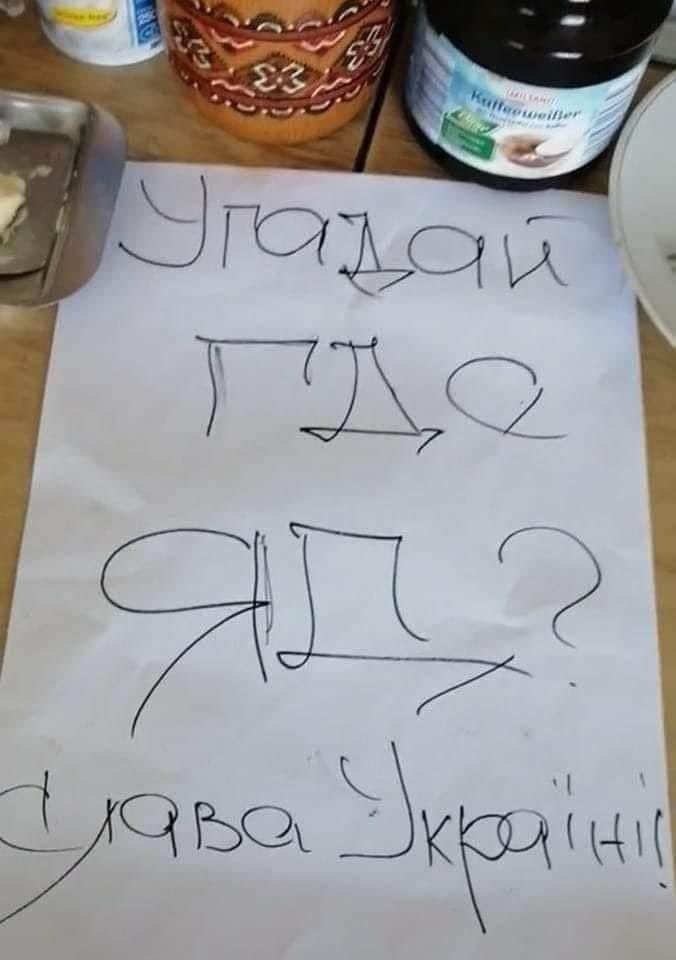 MILSANI
Kaffeeweißer
Угадай
ГДе
ЯД?
Слава Україні!